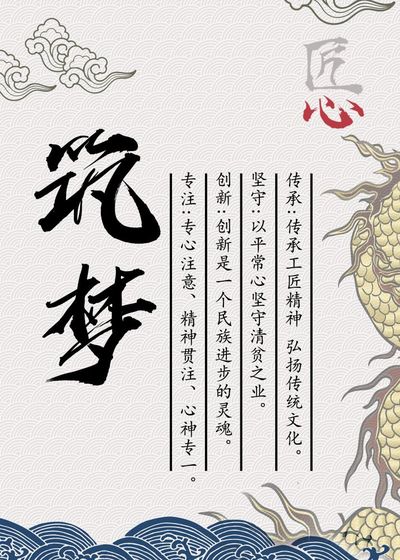 匠心
传承:传承工匠精神 弘扬传统文化。
坚守:以平常心坚守清贫之业。
创新:创新是一个民族进步的灵魂。
专注:专心注意、精神贯注、心神专一。
筑梦